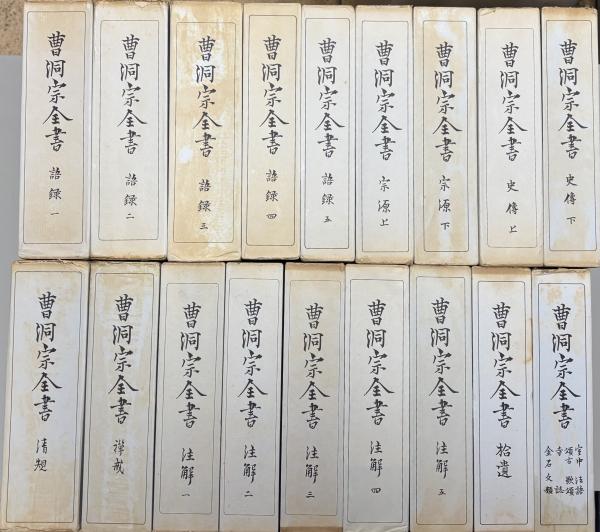 曹洞宗全書 語録 一
曹洞宗全書 語録 二
曹洞宗全書 語録 三
曹洞宗全書 語録 四
曹洞宗全書 語録 五
曹洞宗全書 宗源 上
曹洞宗全書 宗源 下
曹洞宗全書 史傳 上
曹洞宗全書 史傳 下
曹洞宗全書 清規
曹洞宗全書 禅戒
曹洞宗全書 注解 一
曹洞宗全書 注解 二
曹洞宗全書 注解 三
曹洞宗全書 注解 四
曹洞宗全書 注解 五
曹洞宗全書 拾遺
曹洞宗全書
室中 法語
頌古 歌頌
寺誌
金石文類